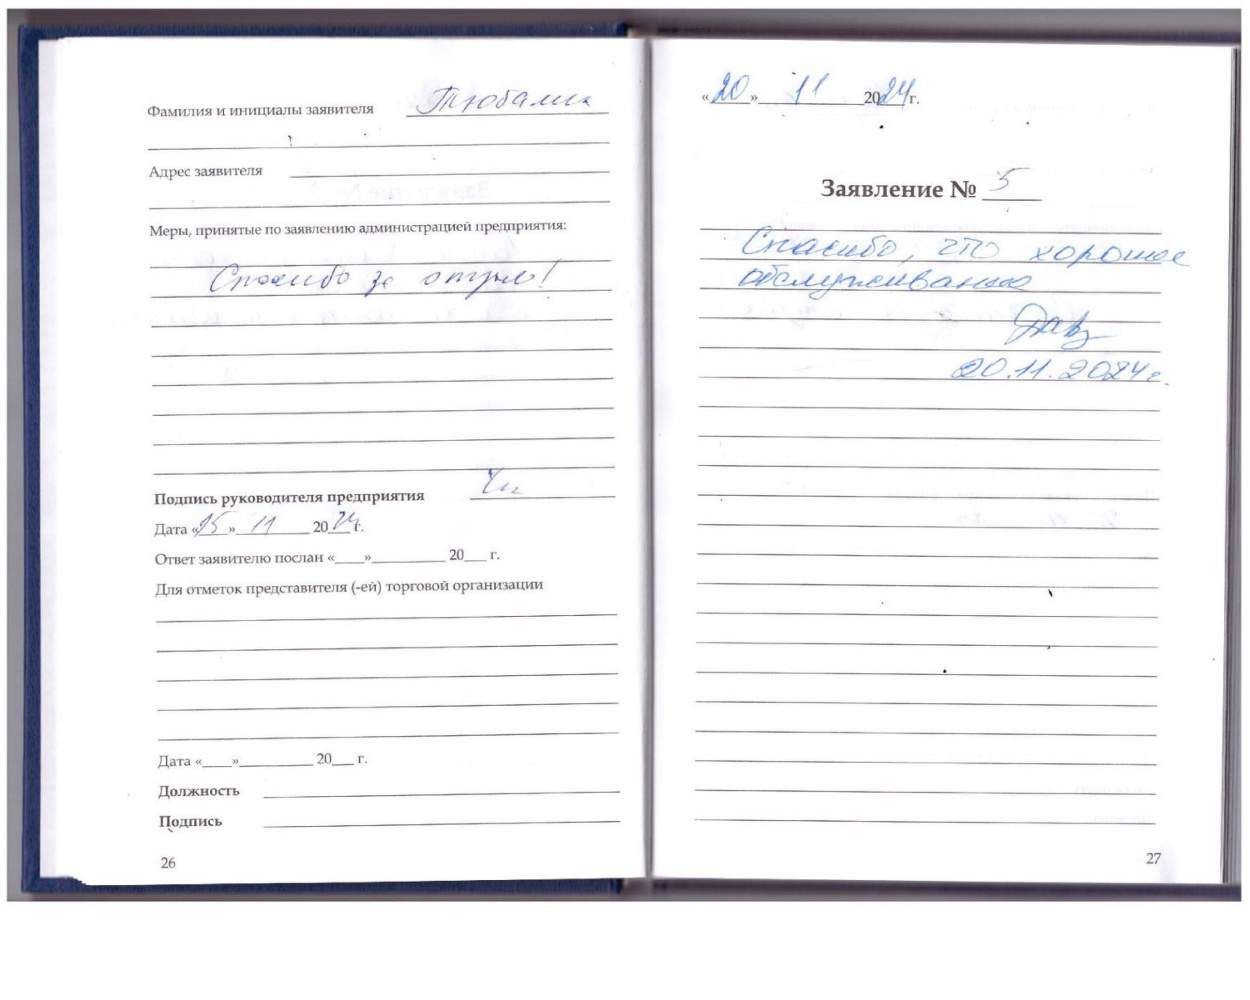 Фамилия и инициалы заявителя
Адрес заявителя
Меры, принятые по заявлению администрацией предприятия:
Спасибо за отзыв!
Подпись руководителя предприятия
Дата «25» 11 2024 г.
Ответ заявителю послан «____»__________ 20___ г.
Для отметок представителя (-ей) торговой организации
Дата «____»__________ 20___ г.
Должность
Подпись
26
«20» 11 2024г.
Заявление № 5
Спасибо, что хорошее
обслуживание
20.11.2024г.
27